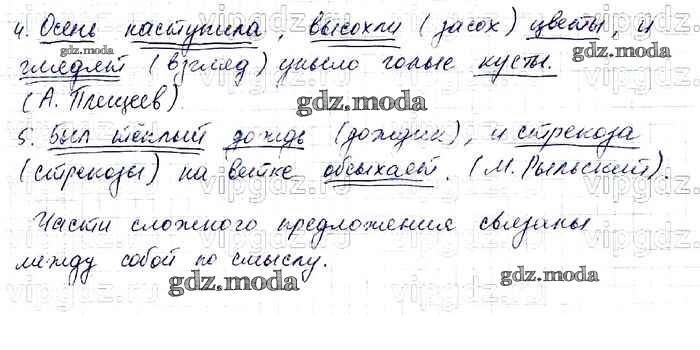 4. Осень наступила, высохли (засох) цветы, и
глядят (взгляд) уныло голые кусты.
(А. Плещеев).
5. Был тёплый дождь (дождик), и стрекоза
(стрекозы) на ветке обсыхает. (М. Рыльский).
Части сложного предложения связаны
между собой по смыслу.
gdz.moda
gdz.moda
gdz.moda
gdz.moda
gdz.moda
gdz.moda